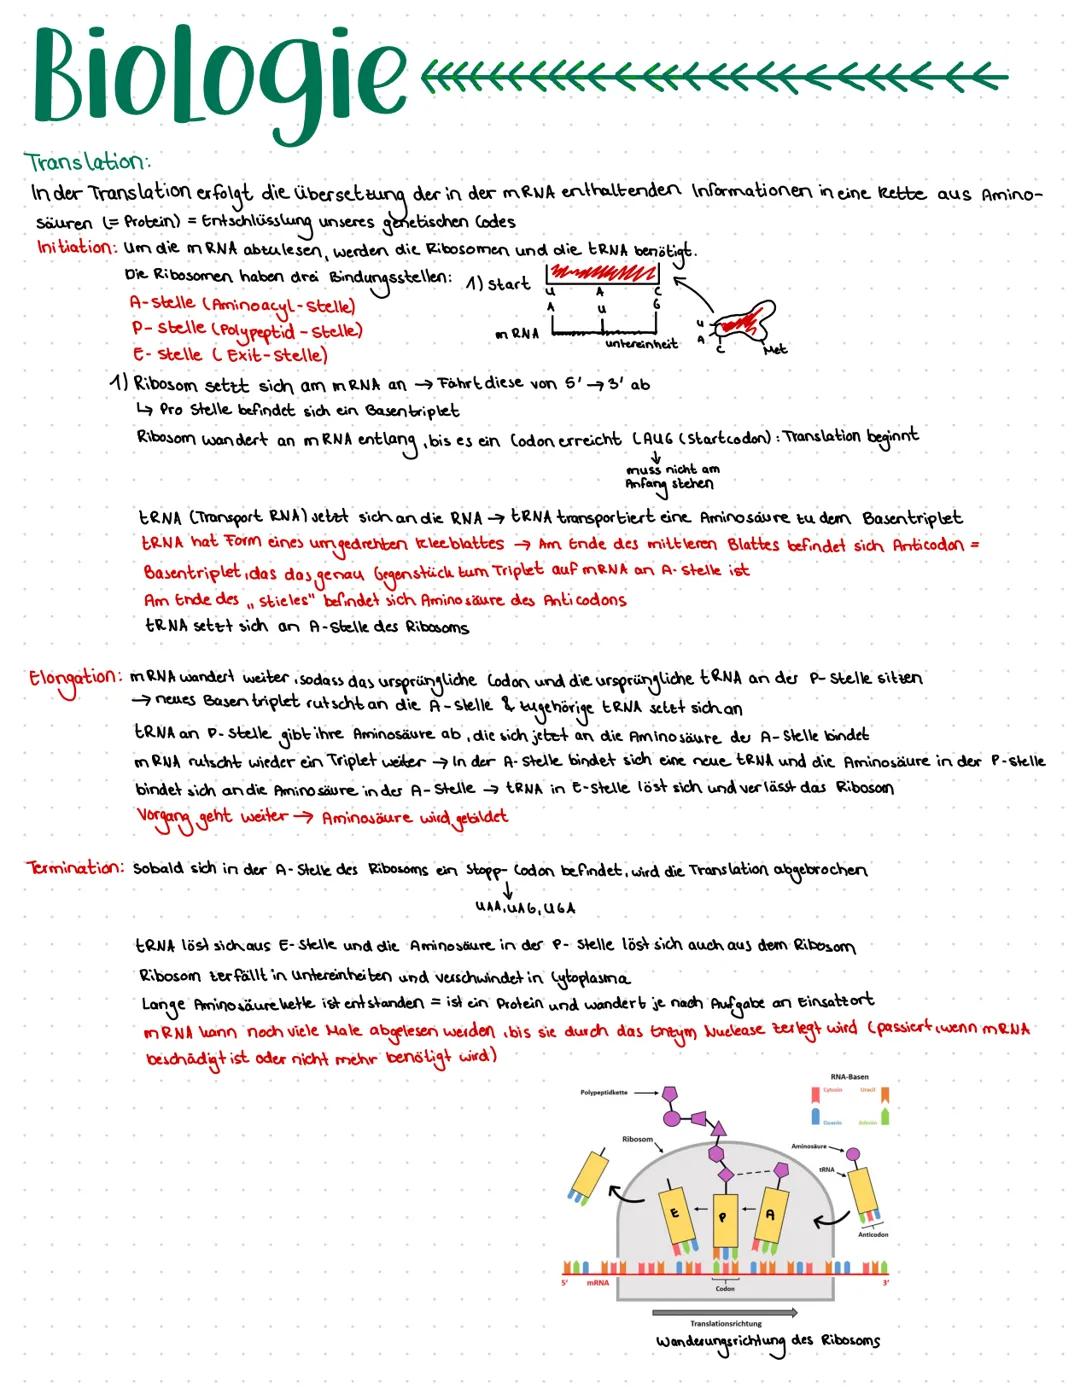 Biologie
Translation:
In der Translation erfolgt die Übersetzung der in der mRNA enthaltenden Informationen in eine Kette aus Amino-
säuren (= Protein) = Entschlüsslung unseres genetischen Codes
Initiation: Um die mRNA abzulesen, werden die Ribosomen und die tRNA benötigt.
Die Ribosomen haben drei Bindungsstellen:
A-Stelle (Aminoacyl-Stelle)
P-Stelle (Polypeptid-Stelle)
E-Stelle (Exit-Stelle)
1) Start
U A C
A U G
mRNA
untereinheit
U
A
C
Met
1) Ribosom setzt sich am mRNA an → Fährt diese von 5' → 3' ab
↳ Pro Stelle befindet sich ein Basentriplet
Ribosom wandert an mRNA entlang, bis es ein Codon erreicht (AUG (Startcodon): Translation beginnt
↓
muss nicht am
Anfang stehen
tRNA (Transport RNA) setzt sich an die RNA → tRNA transportiert eine Aminosäure zu dem Basentriplet
tRNA hat Form eines umgedrehten Kleeblattes → Am Ende des mittleren Blattes befindet sich Anticodon =
Basentriplet, das das genau Gegenstück zum Triplet auf mRNA an A-Stelle ist
Am Ende des „Stieles" befindet sich Aminosäure des Anticodons
tRNA setzt sich an A-Stelle des Ribosoms
Elongation: mRNA wandert weiter, sodass das ursprüngliche Codon und die ursprüngliche tRNA an der P-Stelle sitzen
→ neues Basentriplet rutscht an die A-Stelle & zugehörige tRNA setzt sich an
tRNA an P-Stelle gibt ihre Aminosäure ab, die sich jetzt an die Aminosäure der A-Stelle bindet
mRNA rutscht wieder ein Triplet weiter → In der A-Stelle bindet sich eine neue tRNA und die Aminosäure in der P-Stelle
bindet sich an die Aminosäure in der A-Stelle → tRNA in E-Stelle löst sich und verlässt das Ribosom
Vorgang geht weiter → Aminosäure wird gebildet
Termination: Sobald sich in der A-Stelle des Ribosoms ein Stopp-Codon befindet, wird die Translation abgebrochen
↓
UAA, UAG, UGA
tRNA löst sich aus E-Stelle und die Aminosäure in der P-Stelle löst sich auch aus dem Ribosom
Ribosom zerfällt in Untereinheiten und verschwindet in Cytoplasma
Lange Aminosäurekette ist entstanden = ist ein Protein und wandert je nach Aufgabe an Einsatzort
mRNA kann noch viele Male abgelesen werden, bis sie durch das Enzym Nuclease zerlegt wird (passiert, wenn mRNA
beschädigt ist oder nicht mehr benötigt wird)
RNA-Basen
Cytosin Uracil
Guanin Adenin
Polypeptidkette
Ribosom
Aminosäure
tRNA
E P A
Anticodon
5' mRNA 3'
Codon
Translationsrichtung
Wanderungsrichtung des Ribosoms